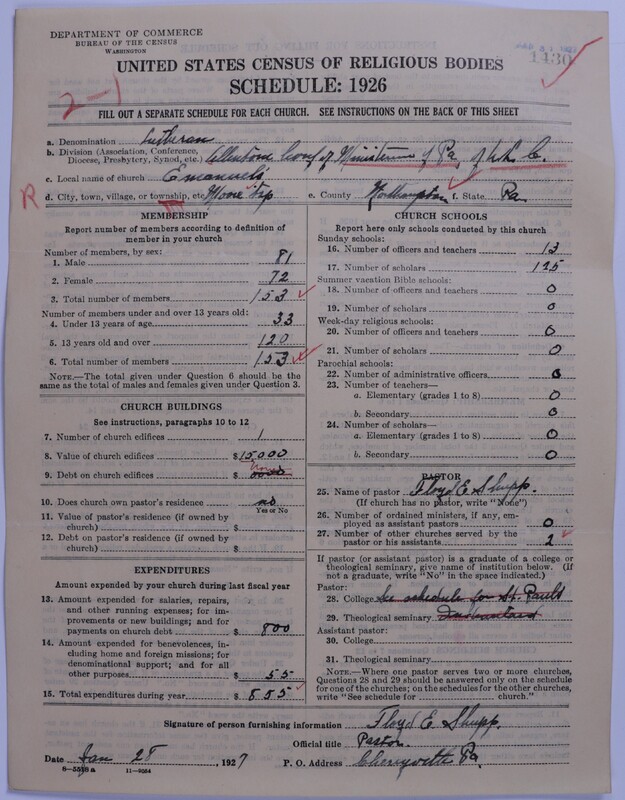 DEPARTMENT OF COMMERCE
BUREAU OF THE CENSUS
WASHINGTON
1430
UNITED STATES CENSUS OF RELIGIOUS BODIES
SCHEDULE: 1926
2-1
FILL OUT A SEPARATE SCHEDULE FOR EACH CHURCH. SEE INSTRUCTIONS ON THE BACK OF THIS SHEET
a. Denomination Lutheran
b. Division (Association, Conference, Diocese, Presbytery, Synod, etc.) Allentown Conf of Ministerium of Pa. of U.L.C.
c. Local name of church Emanuels
R d. City, town, village, or township, etc. Moore Twp e. County Northampton f. State Pa
MEMBERSHIP
Report number of members according to definition of
member in your church
Number of members, by sex:
1. Male 81
2. Female 72
3. Total number of members 153
Number of members under and over 13 years old:
4. Under 13 years of age 33
5. 13 years old and over 120
6. Total number of members 153
NOTE.—The total given under Question 6 should be the
same as the total of males and females given under Question 3.
CHURCH BUILDINGS
See instructions, paragraphs 10 to 12
7. Number of church edifices 1
8. Value of church edifices $15000
9. Debt on church edifices $ none
10. Does church own pastor's residence no
Yes or No
11. Value of pastor's residence (if owned by
church) $
12. Debt on pastor's residence (if owned by
church) $
EXPENDITURES
Amount expended by your church during last fiscal year
13. Amount expended for salaries, repairs,
and other running expenses; for im-
provements or new buildings; and for
payments on church debt $ 800
14. Amount expended for benevolences, in-
cluding home and foreign missions; for
denominational support; and for all
other purposes $ 55
15. Total expenditures during year $ 855
CHURCH SCHOOLS
Report here only schools conducted by this church
Sunday schools:
16. Number of officers and teachers 13
17. Number of scholars 125
Summer vacation Bible schools:
18. Number of officers and teachers 0
19. Number of scholars 0
Week-day religious schools:
20. Number of officers and teachers 0
21. Number of scholars 0
Parochial schools:
22. Number of administrative officers 0
23. Number of teachers—
a. Elementary (grades 1 to 8) 0
b. Secondary 0
24. Number of scholars—
a. Elementary (grades 1 to 8) 0
b. Secondary 0
PASTOR
25. Name of pastor Floyd E Shupp.
(If church has no pastor, write "None")
26. Number of ordained ministers, if any, em-
ployed as assistant pastors 0
27. Number of other churches served by the
pastor or his assistants 2
If pastor (or assistant pastor) is a graduate of a college or
theological seminary, give name of institution below. (If
not a graduate, write "No" in the space indicated.)
Pastor:
28. College See schedule for St. Pauls
29. Theological seminary
Assistant pastor:
30. College
31. Theological seminary
NOTE.—Where one pastor serves two or more churches,
Questions 28 and 29 should be answered only on the schedule
for one of the churches; on the schedules for the other churches,
write "See schedule for church."
Signature of person furnishing information Floyd E Shupp
Official title Pastor.
Date Jan 28, 1927 P. O. Address Cherryville Pa.
11-9084